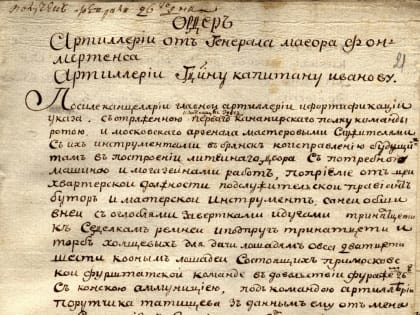 Получен февраля 26 дня
21
Ордеръ
Артиллериї отъ Генерала маеора фон
мартенса
Артиллериї Гдину капитану иванову.
По силе канцеляриї главной артиллериї ифортификациї
указа, съотряженною первого канонирского полку команды
ротою, и московского арсенала мастеровыми служителями
съ ихъ инструментами въбрянскъ киcправлению будущи
тамъ въ построениї литейнаго двора съ потребною
машиною и магазейнами работъ, поприеме отъ
квартерской должности подслужительской правиантъ
и мастерской инструментъ, саней обши
вней съ оглоблями завертками идугами тринатцети
къ седелкамъ ремней иподпругъ тринатцети и
торбъ холщевыхъ для дачи лошадямъ овса дватцети
шести конымъ лошадей состоящихъ примосковс
кой фурштатской команде въ довольствиї фураже
съ конскою аммунициею, под командою артиллериї
порутчика татищева зъ даннымъ ему отъ меня